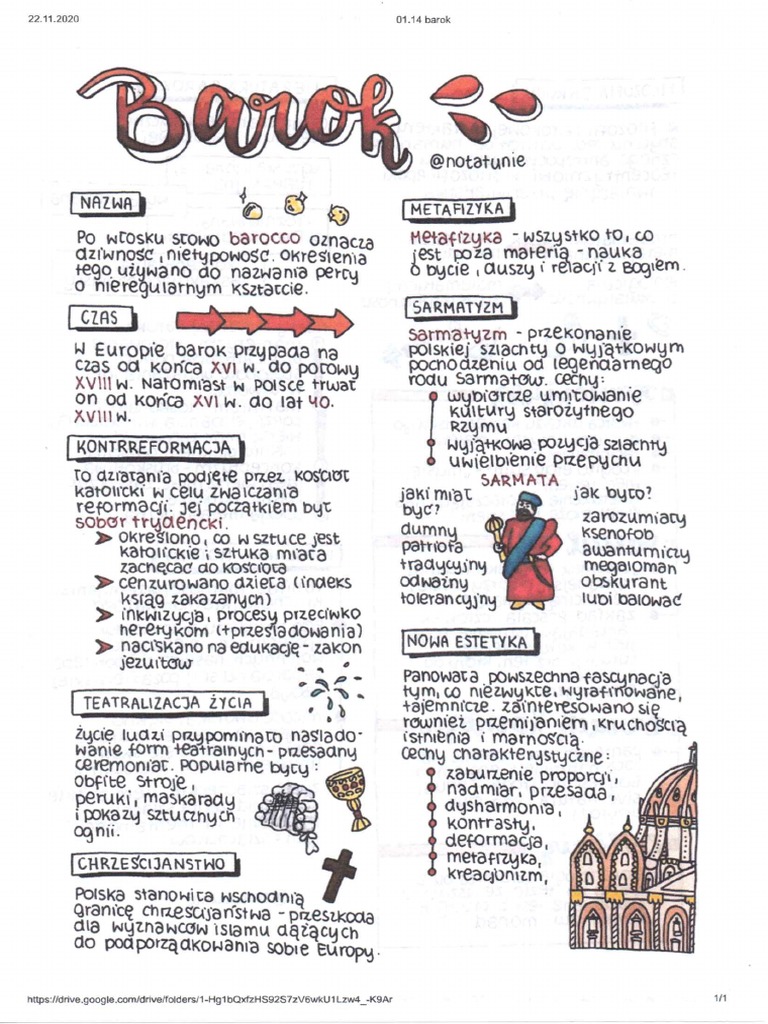 22.11.2020
01.14 barok
Barok
@notatunie
NAZWA
Po włosku słowo barocco oznacza
dziwność, nietypowość. Określenia
tego używano do nazwania perły
o nieregularnym kształcie.
CZAS
W Europie barok przypada na
czas od końca XVI w. do połowy
XVIII w. Natomiast w Polsce trwał
on od końca XVI w. do lat 40.
XVIII w.
KONTRREFORMACJA
To działania podjęte przez kościół
katolicki w celu zwalczania
reformacji. Jej początkiem był
sobór trydencki.
określono, co w sztuce jest
katolickie i sztuka miała
zachęcać do kościoła
cenzurowano dzieła (indeks
ksiąg zakazanych)
inkwizycja, procesy przeciwko
heretykom (+prześladowania)
naciskano na edukację - zakon
jezuitów
TEATRALIZACJA ŻYCIA
Życie ludzi przypominało naślado-
wanie form teatralnych - przesadny
ceremoniał. Popularne były:
obfite stroje,
peruki, maskarady
i pokazy sztucznych
ognii.
CHRZEŚCIJAŃSTWO
Polska stanowiła wschodnią
granicę chrześcijaństwa - przeszkoda
dla wyznawców islamu dążących
do podporządkowania sobie Europy.
METAFIZYKA
Metafizyka - wszystko to, co
jest poza materią - nauka
o bycie, duszy i relacji z Bogiem.
SARMATYZM
Sarmatyzm - przekonanie
polskiej szlachty o wyjątkowym
pochodzeniu od legendarnego
rodu Sarmatów. Cechy:
wybiórcze umiłowanie
kultury starożytnego
Rzymu
wyjątkowa pozycja szlachty
uwielbienie przepychu
SARMATA
jaki miał
być?
dumny
patriota
tradycyjny
odważny
tolerancyjny
jak było?
zarozumiały
ksenofob
awanturniczy
megaloman
obskurant
lubi balować
NOWA ESTETYKA
Panowała powszechna fascynacja
tym, co niezwykłe, wyrafinowane,
tajemnicze. Zainteresowano się
również przemijaniem, kruchością
istnienia i marnością.
Cechy charakterystyczne:
zaburzenie proporcji,
nadmiar, przesada,
dysharmonia,
kontrasty,
deformacja,
metafizyka,
kreacjonizm,
https://drive.google.com/drive/folders/1-Hg1bQxfzHS92S7zV6wkU1Lzw4_-K9Ar
1/1